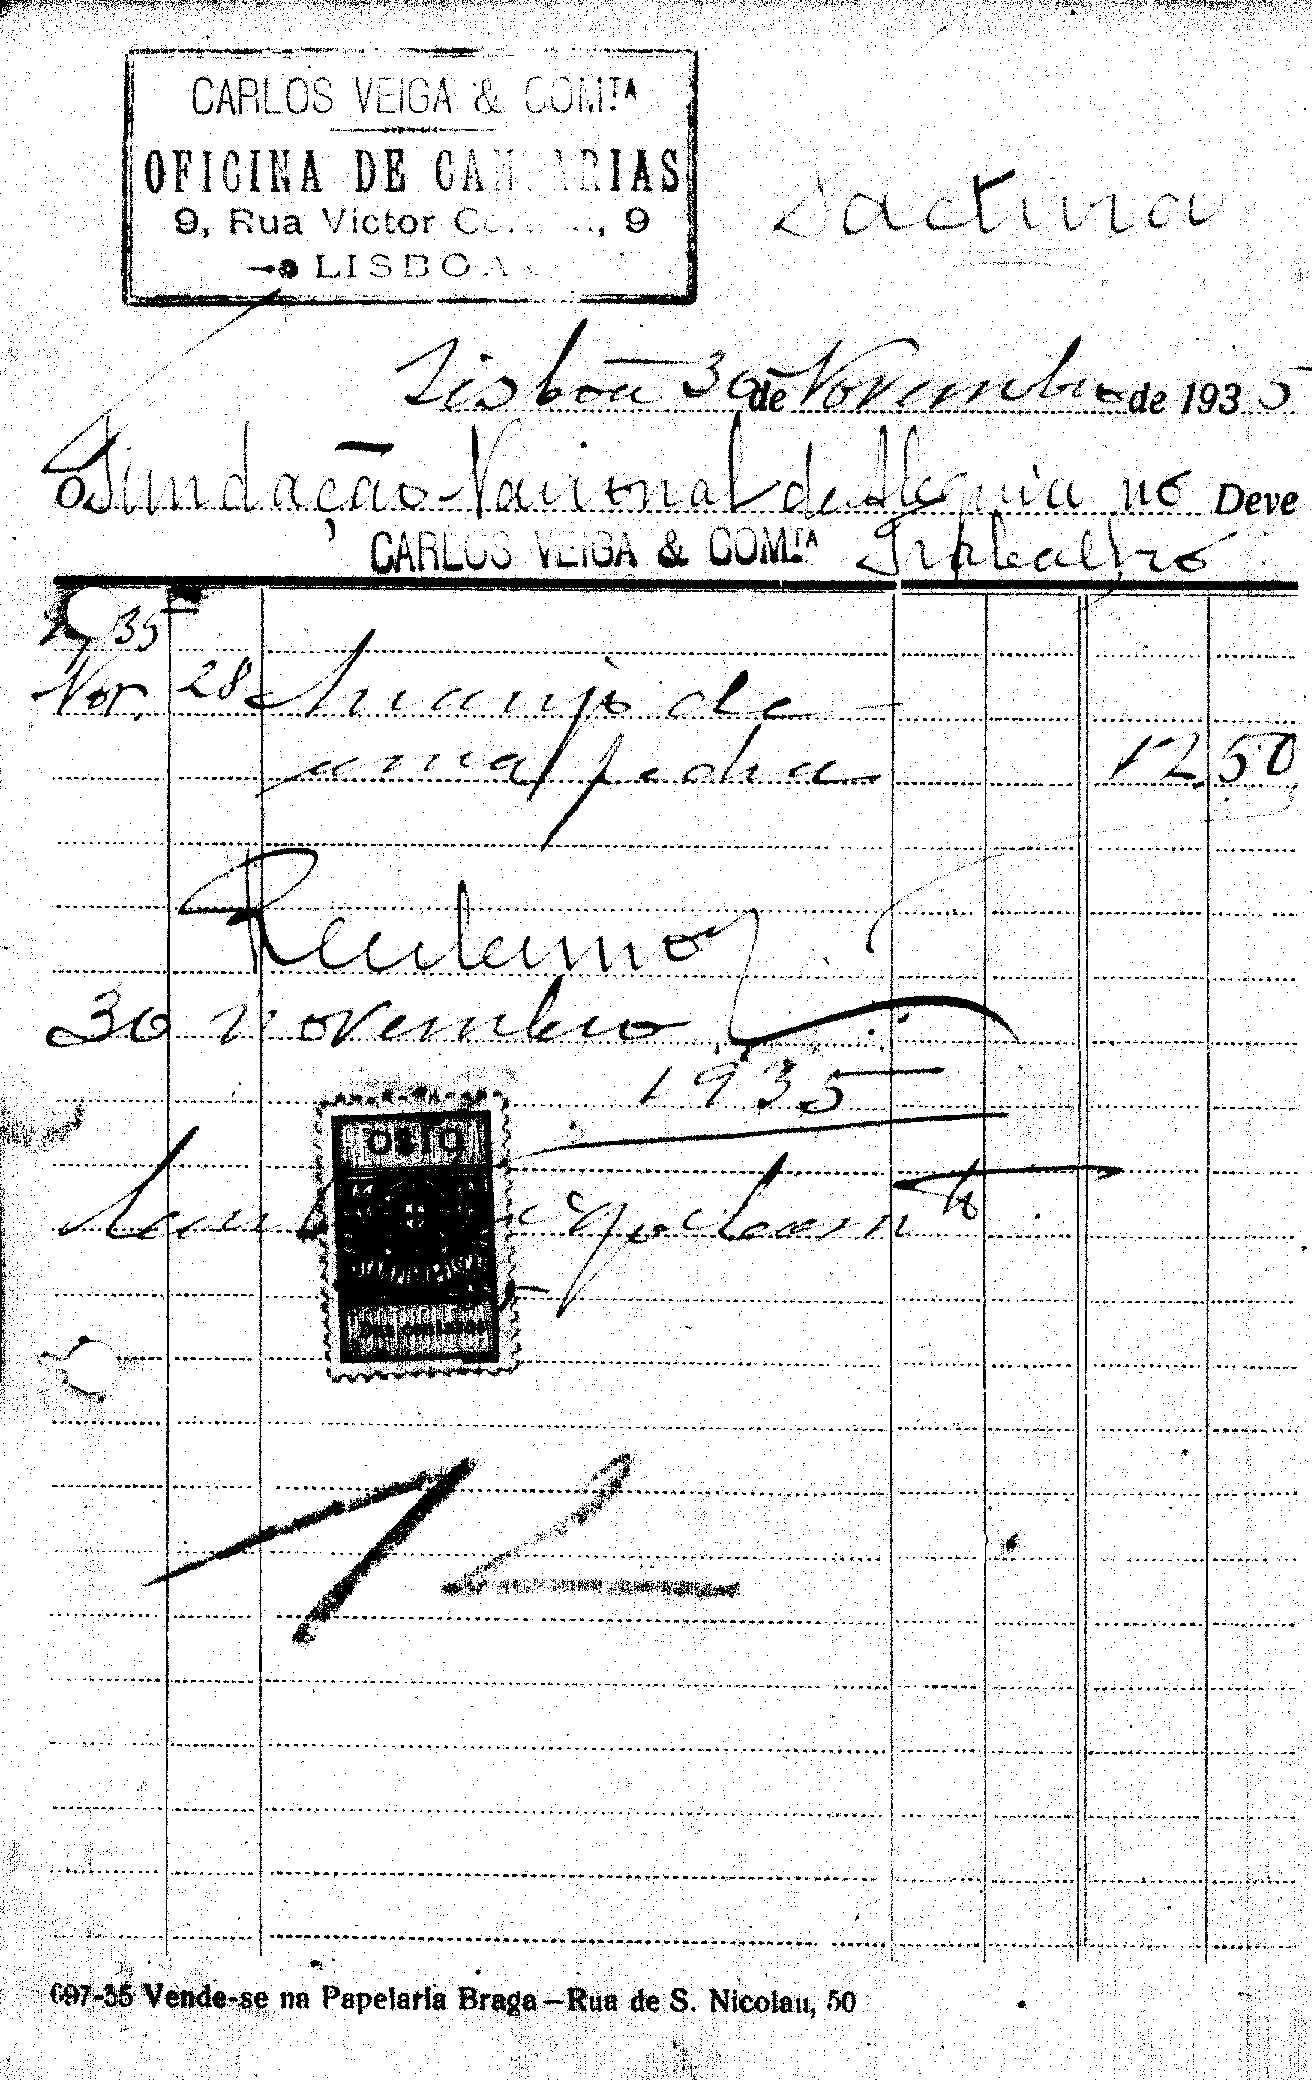 CARLOS VEIGA & COM.TA
OFICINA DE CANTARIAS
9, Rua Victor Co..., 9
LISBOA
Factura
Lisboa 30 de Novembro de 1935
O Fundação Nacional de Alegria no Deve
CARLOS VEIGA & COM.TA Trabalho
35
Nov. 28 Arranjo de
uma pedra 12,50
Recebemos
30 novembro
1935
12
697-35 Vende-se na Papelaria Braga—Rua de S. Nicolau, 50